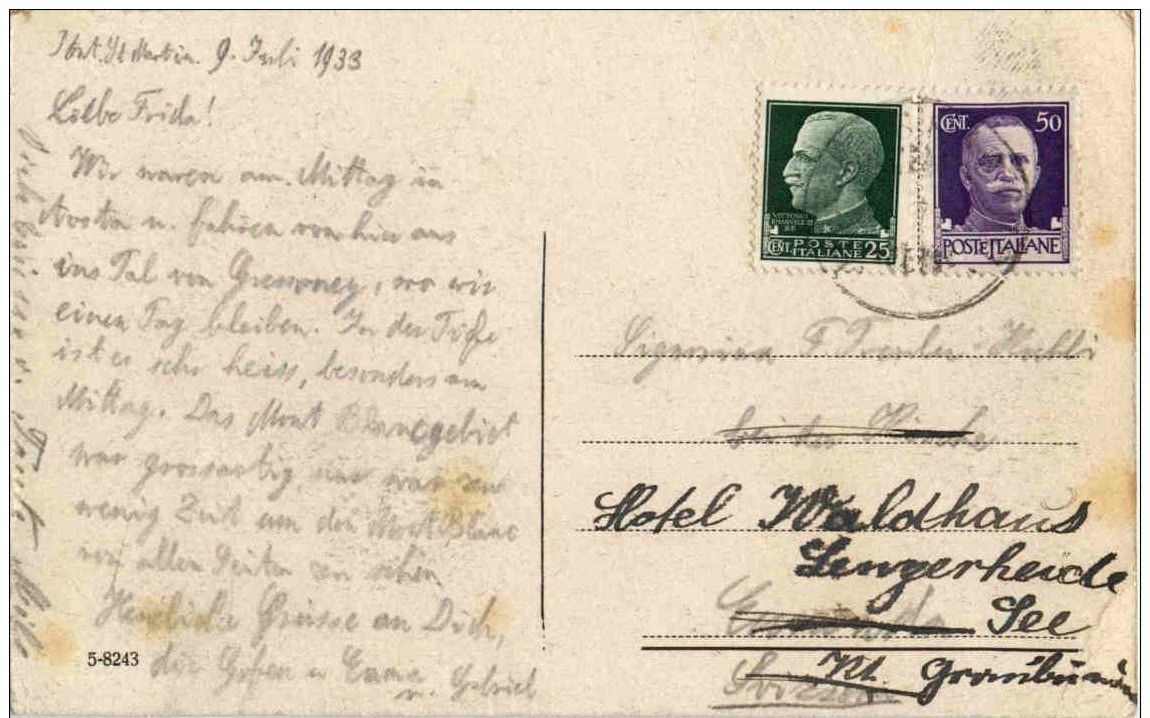 Pont. St Martin. 9. Juli 1933
Liebe Frida!
Wir waren am Mittag in
Aosta u. fahren von hier aus
ins Tal von Gressoney, wo wir
einen Tag bleiben. In der Tiefe
ist es sehr heiss, besonders am
Mittag. Das Mont Blancgebiet
war grossartig, nur war zu
wenig Zeit um den Mont Blanc
von allen Seiten zu sehen
Herzliche Grüsse an Dich,
die Gofen u Emma
u. Gabriel
5-8243
CENT. 50
VITTORIO
EMANUELE III
RE
CENT. POSTE ITALIANE 25
POSTE ITALIANE
Signorina F
bei der
Hotel Waldhaus
Lenzerheide
See
Kt. Graubünden
Svizzera